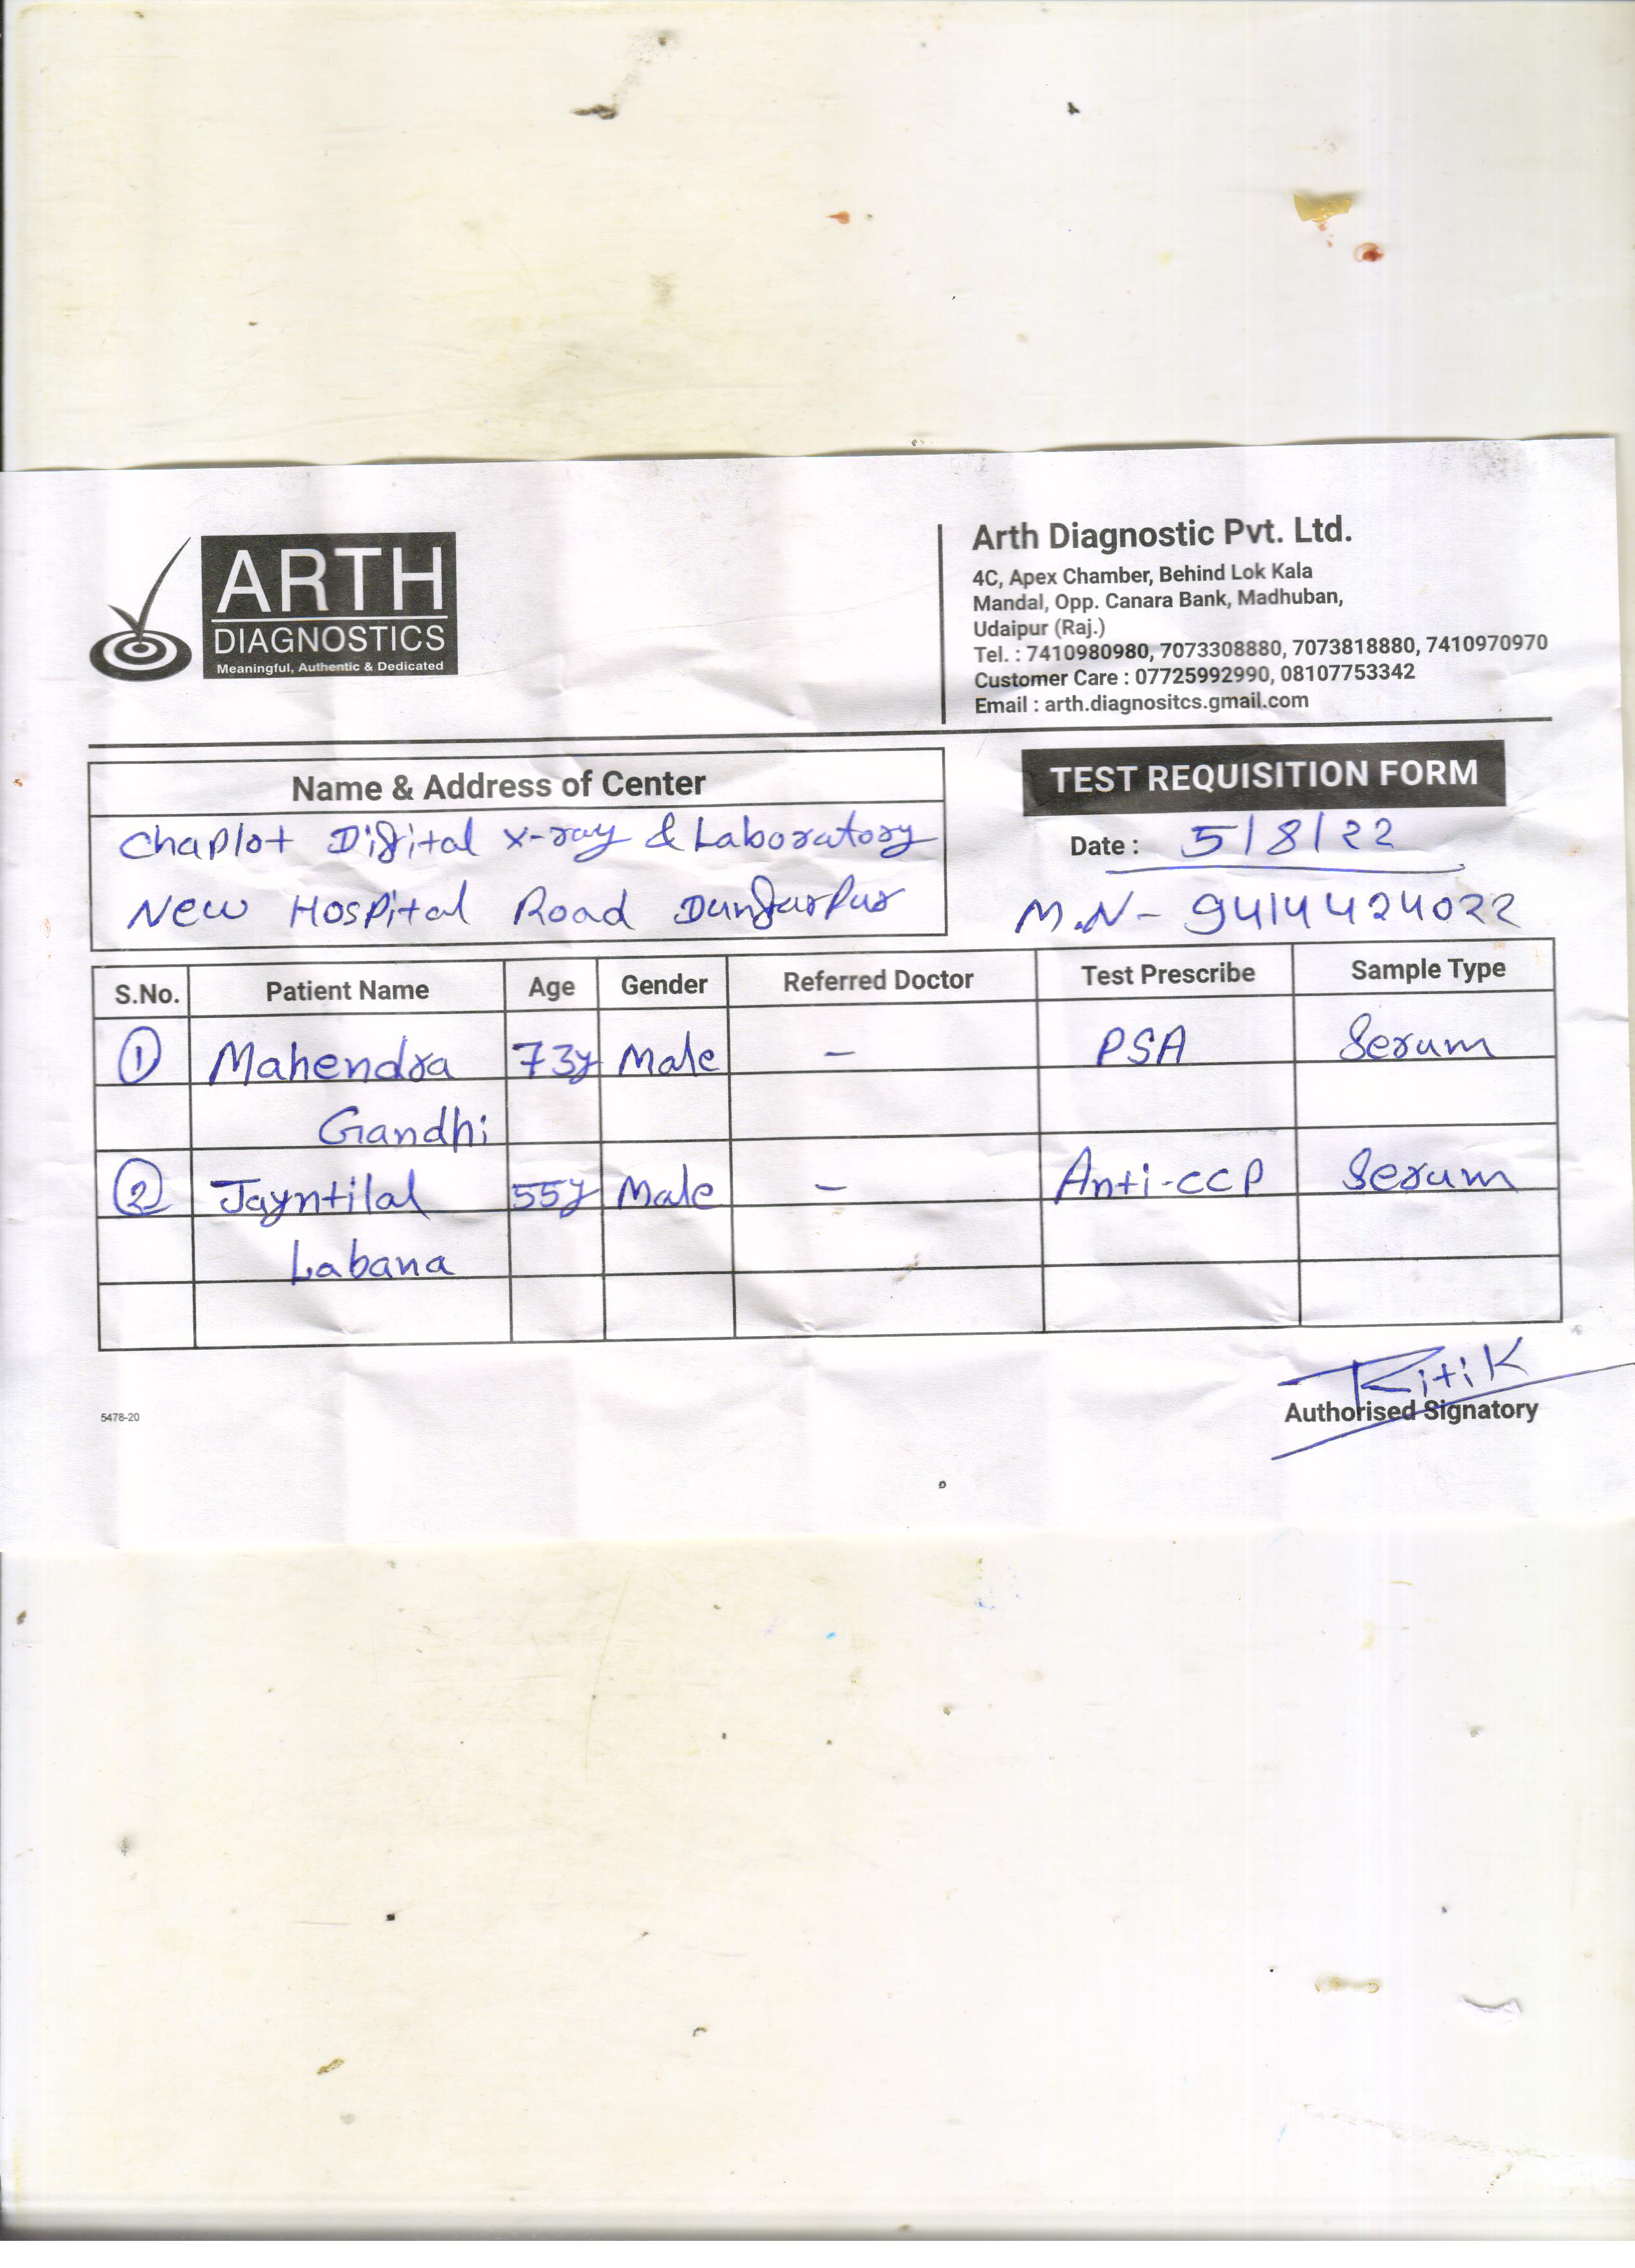 ARTH
DIAGNOSTICS
Meaningful, Authentic & Dedicated
Arth Diagnostic Pvt. Ltd.
4C, Apex Chamber, Behind Lok Kala
Mandal, Opp. Canara Bank, Madhuban,
Udaipur (Raj.)
Tel. : 7410980980, 7073308880, 7073818880, 7410970970
Customer Care : 07725992990, 08107753342
Email : arth.diagnositcs.gmail.com
Name & Address of Center
Chaplot Digital X-ray & Laboratory
New Hospital Road Dungarpur
TEST REQUISITION FORM
Date : 5/8/22
M.N- 9414424022
S.No. Patient Name Age Gender Referred Doctor Test Prescribe Sample Type
1 Mahendra 73y Male - PSA Serum
Gandhi
2 Jayntilal 55y Male - Anti-CCP Serum
Labana
Ritik
Authorised Signatory
5478-20